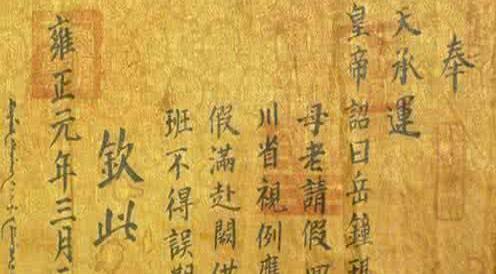 奉
天承運
皇帝詔曰岳鐘琪
母老請假
川省視例應
假滿赴闕
班不得誤期
欽此
雍正元年三月